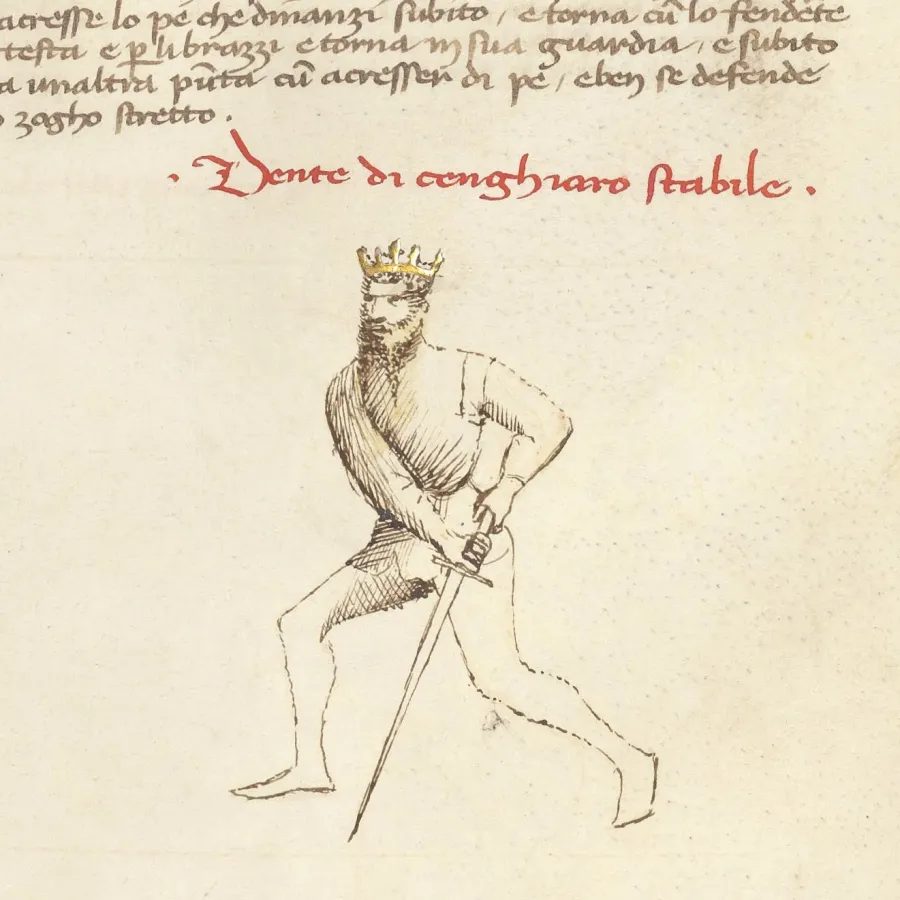 acresse lo pe che dinanzi subito / e torna cū lo fendēte
testa e p li brazzi e torna in sua guardia / e subito
a unaltra pūta cū acresser di pe / e ben se defende
o zogho stretto .
. Dente di cenghiaro stabile .